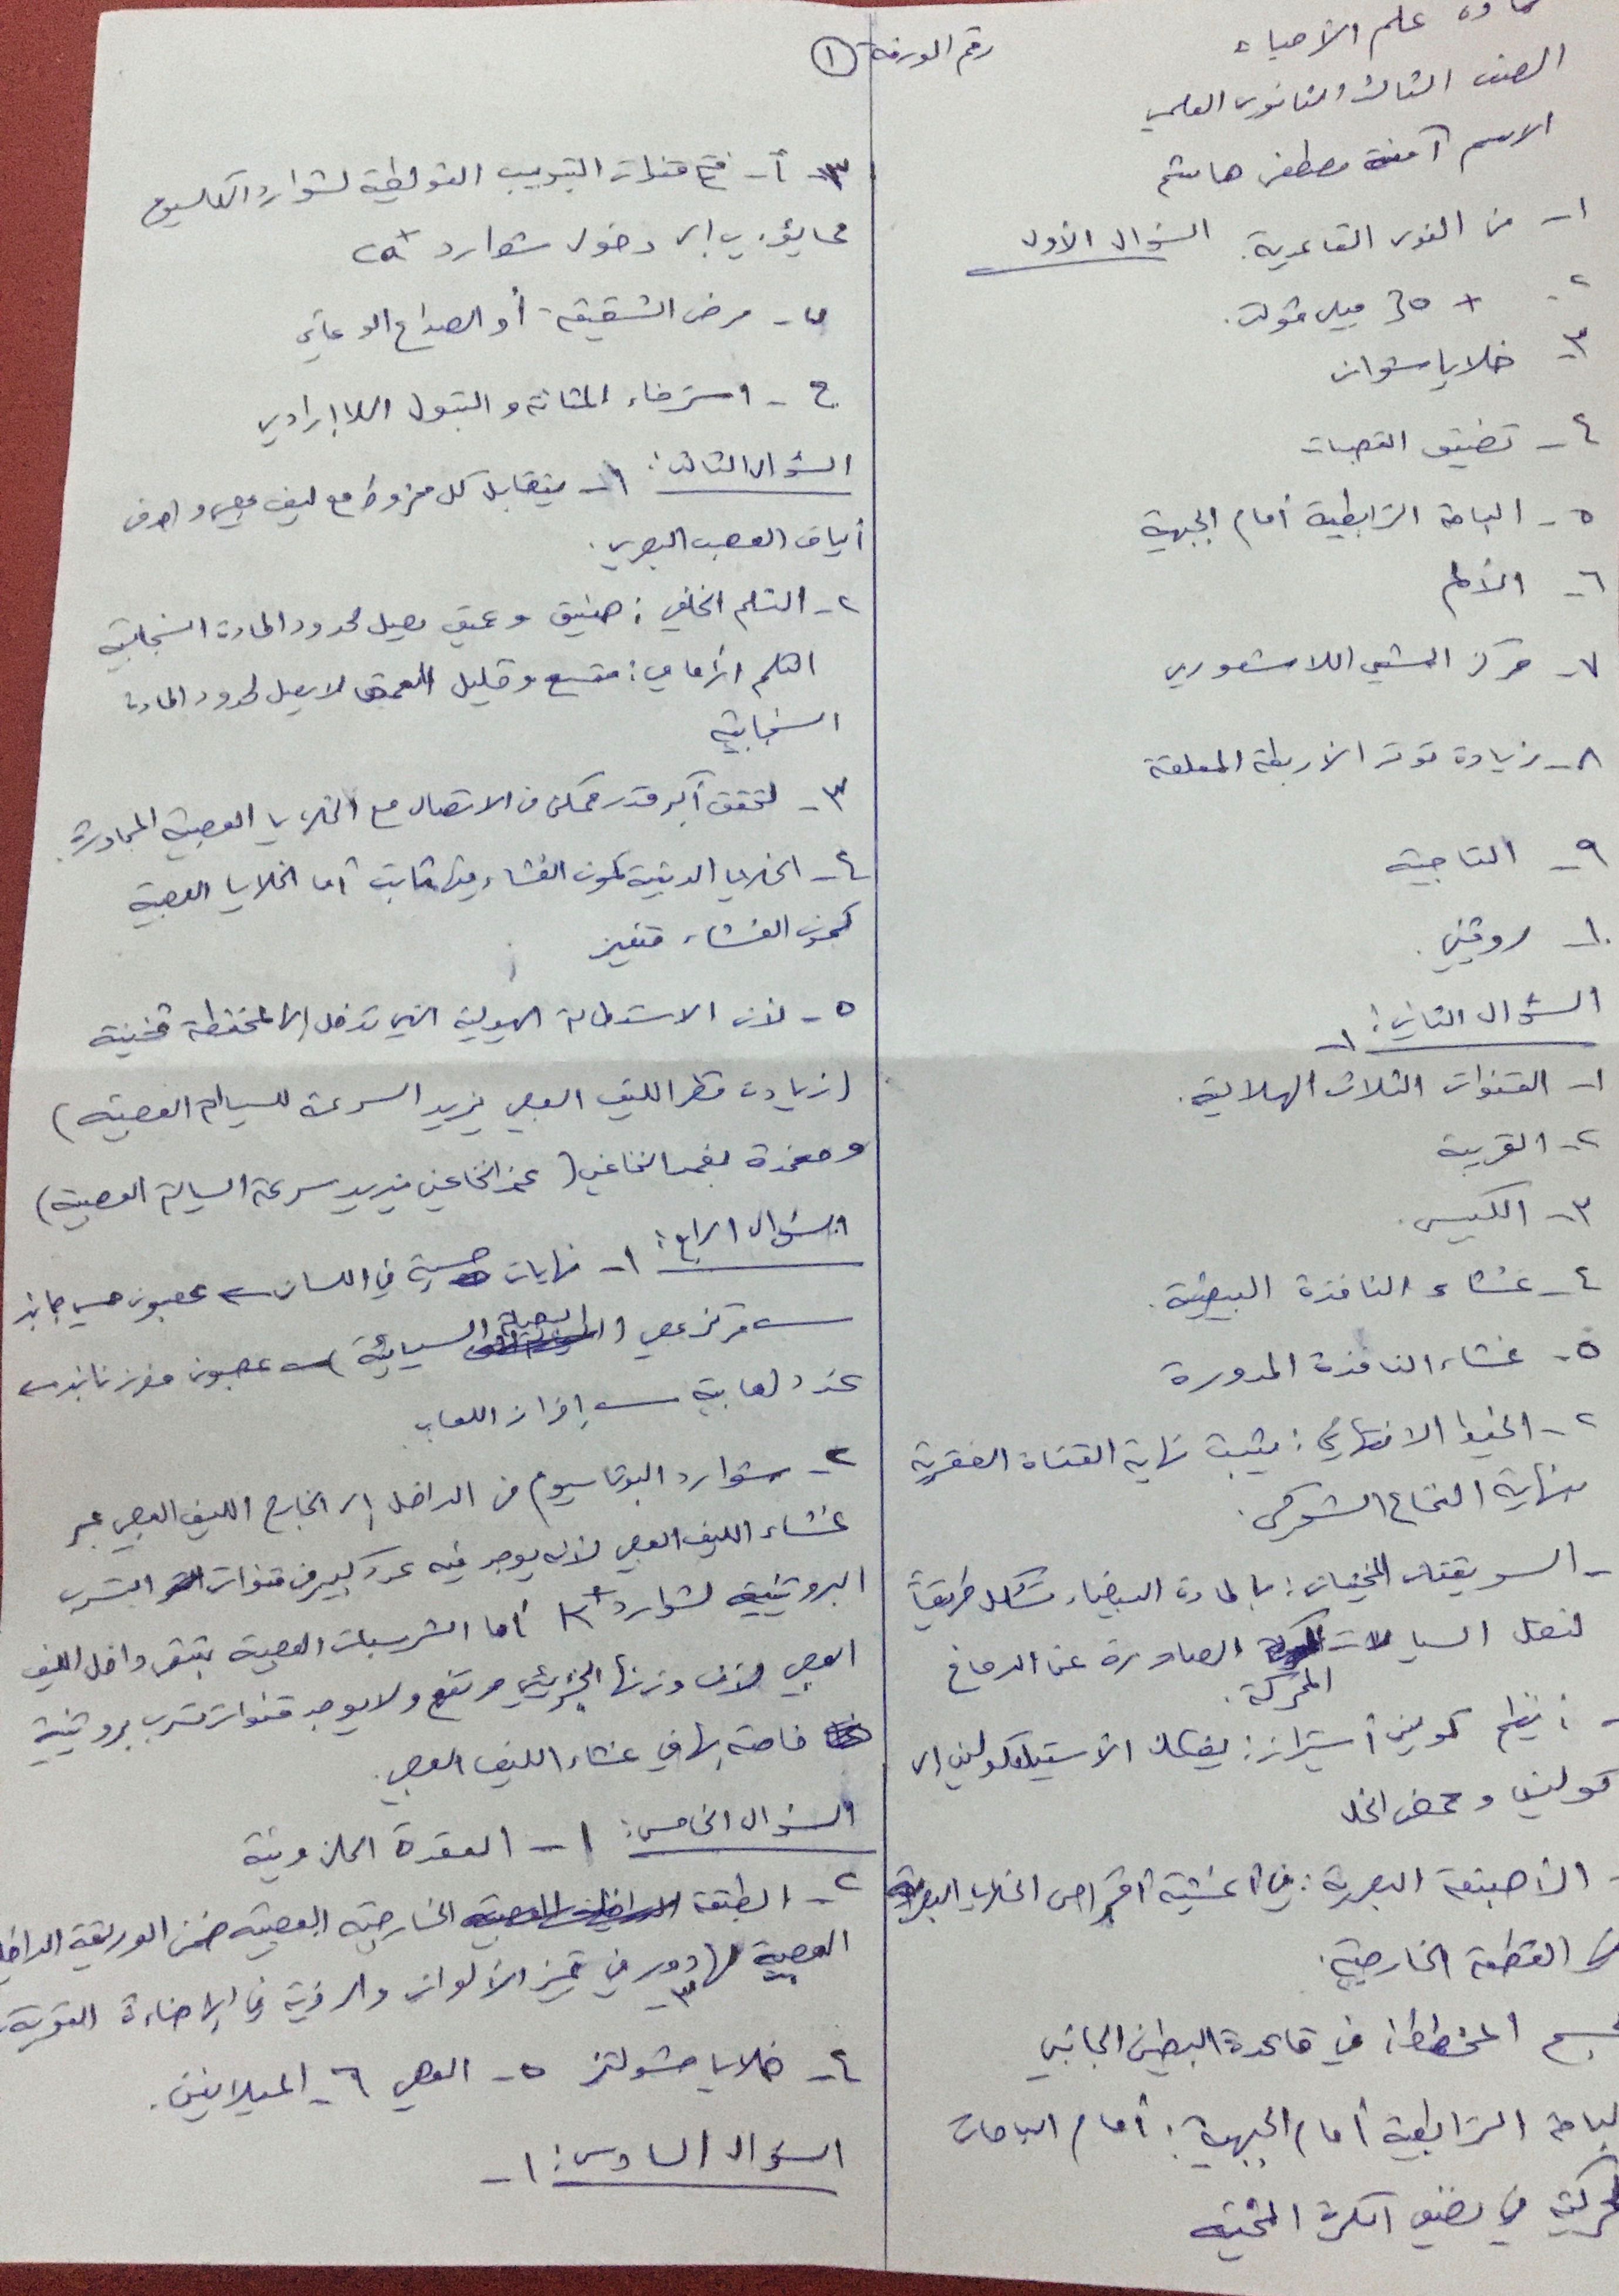 مادة علم الأحياء
رقم الورقة ①
الصف الثالث الثانوي العلمي
الاسم آمنة مصطفى هاشم
السؤال الأول
١- من القوى القاعدية.
٢- + 30 ميلي فولت.
٣- خلايا شوان
٤- تضيق القصبات
٥- الباحة الترابطية أمام الجبهية
٦- الألم
٧- مركز المشي اللاشعوري
٨- زيادة توتر الأربطة المعلقة
٩- التاجية
١٠- روتيني.
السؤال الثاني: ١-
١- القنوات الثلاث الهلالية.
٢- القريبة
٣- الكييس.
٤- غشاء النافذة البيضية.
٥- غشاء النافذة المدورة
٢- الخيط الانتهائي: يثبت نهاية القناة الفقرية
بنهاية النخاع الشوكي.
- السويقتان المخيتان: بالمادة البيضاء تشكل طريقاً
لنقل السيالات المحركة الصادرة عن الدماغ.
- أنظيم كولين أستيراز: يفكك الأستيل كولين إلى
كولين وحمض الخل
- الأصبغة البصرية: في أغشية أقراص الخلايا البصرية
القطعة الخارجية.
الجسم المخطط: في قاعدة البطين الجانبي
الباحة الترابطية أمام الجبهية: أمام الباحات
المحركية في نصفي الكرة المخية
٣- أ- فتح قنوات التبويب الفولطية لشوارد الكالسيوم
مما يؤدي إلى دخول شوارد ca⁺
ب- مرض الشقيقة أو الصداع الوعائي
ج- استرخاء المثانة والتبول اللاإرادي
السؤال الثالث: ١- يتقابل كل مخروط مع ليف عصبي واحد من
ألياف العصب البصري.
٢- الثلم الخلفي: ضيق وعميق يصل لحدود المادة السنجابية
الثلم الأمامي: متسع وقليل العمق لا يصل لحدود المادة
السنجابية
٣- لتحقق أكبر قدر ممكن من الاتصال مع الخلايا العصبية المجاورة.
٤- الخلايا الدبقية كمون الغشاء فيها ثابت أما الخلايا العصبية
كمون الغشاء متغير
٥- لأن الاستطالة الهيولية التي تدخل إلى المحفظة ثخينة
(زيادة قطر الليف العصبي يزيد السرعة للسيالة العصبية)
ومغمدة بغمد النخاعين (غمد النخاعين يزيد سرعة السيالة العصبية)
السؤال الرابع: ١- نهايات حسية في اللسان ← عصبون حسي جابذ
← مركز عصبي (البصلة السيسائية) ← عصبون مفرز نابذ ←
غدد لعابية ← إفراز اللعاب.
٢- شوارد البوتاسيوم من الداخل إلى الخارج الليف العصبي عبر
غشاء الليف العصبي لأنه يوجد فيه عدد كبير من قنوات التسرب
البروتينية لشوارد K⁺ أما الشرسبات العصبية تبقى داخل الليف
العصبي لأن وزنها الجزيئي مرتفع ولا يوجد قنوات تسرب بروتينية
خاصة بها في غشاء الليف العصبي.
السؤال الخامس: ١- العقدة الحلزونية
٢- الطبقة الخارجية العصبية ضمن الوريقة الداخلية
العصبية ٣- لها دور في تمييز الألوان والرؤية في الإضاءة القوية.
٤- خلايا مولر ٥- العصي ٦- الميلانين.
السؤال السادس: ١-